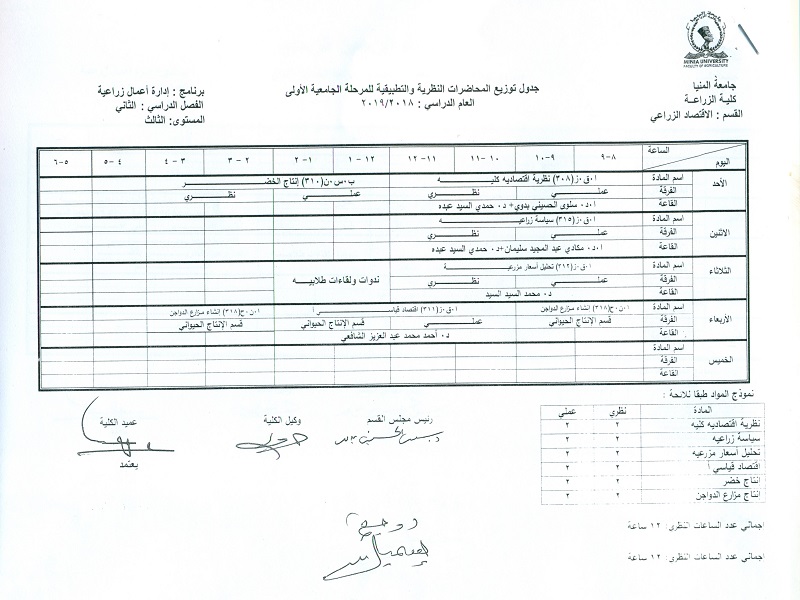 MINIA UNIVERSITY
FACULTY OF AGRICULTURE
جامعة المنيا
كلية الزراعة
القسم : الاقتصاد الزراعي
جدول توزيع المحاضرات النظرية والتطبيقية للمرحلة الجامعية الأولى
العام الدراسي : ٢٠١٩/٢٠١٨
برنامج : إدارة أعمال زراعية
الفصل الدراسي : الثاني
المستوى: الثالث
الساعة
اليوم
٩-٨ ١٠-٩ ١١-١٠ ١٢-١١ ١-١٢ ٢-١ ٣-٢ ٤-٣ ٥-٤ ٦-٥
الأحد
اسم المادة ا.ق.ز(٣٠٨) نظرية اقتصاديه كليه ب.س.ن(٣١٠) إنتاج الخضر
الفرقة عملي نظري عملي نظري
القاعة ا.د. سلوى الحسيني بدوي+ د. حمدي السيد عبده
الاثنين
اسم المادة ا.ق.ز(٣١٥) سياسة زراعيه
الفرقة عملي نظري
القاعة ا.د. مكادي عبد المجيد سليمان+د. حمدي السيد عبده
الثلاثاء
اسم المادة ا.ق.ز(٣١٢) تحليل أسعار مزرعية
الفرقة عملي نظري ندوات ولقاءات طلابيه
القاعة د. محمد السيد السيد
الأربعاء
اسم المادة ا.ن.ح(٣١٨) إنشاء مزارع الدواجن ا.ق.ز(٣١١) اقتصاد قياسي أ ا.ن.ح(٣١٨) إنشاء مزارع الدواجن
الفرقة قسم الإنتاج الحيواني عملي قسم الإنتاج الحيواني قسم الإنتاج الحيواني
القاعة د. أحمد محمد عبد العزيز الشافعي
الخميس
اسم المادة
الفرقة
القاعة
نموذج المواد طبقا للائحة :
المادة نظري عملي
نظرية اقتصاديه كليه ٢ ٢
سياسة زراعيه ٢ ٢
تحليل أسعار مزرعيه ٢ ٢
اقتصاد قياسي أ ٢ ٢
انتاج خضر ٢ ٢
انتاج مزارع الدواجن ٢ ٢
رئيس مجلس القسم
وكيل الكلية
عميد الكلية
يعتمد
اجمالي عدد الساعات النظرى: ١٢ ساعة
اجمالي عدد الساعات النظرى: ١٢ ساعة